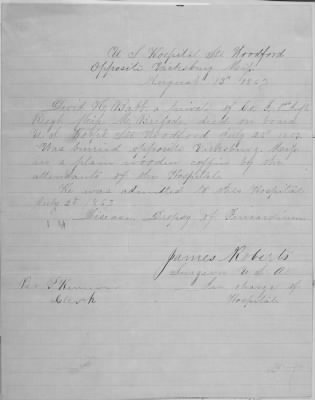 U S Hospital Str Woodford
Opposite Vicksburg Miss
August 13th 1863
David H. Babb a private of Co. I 1st Inft
Regt Miss M. Brigade died on board
U. S. Hospt Str Woodford July 25th 1863
Was buried opposite Vicksburg, Miss
in a plain wooden coffin by the
attendants of the Hospital.
He was admitted to this Hospital
July 2d 1863
Disease Dropsy of Pericardium
James Roberts
Surgeon U S A
Per
In charge of
Clerk
Hospital